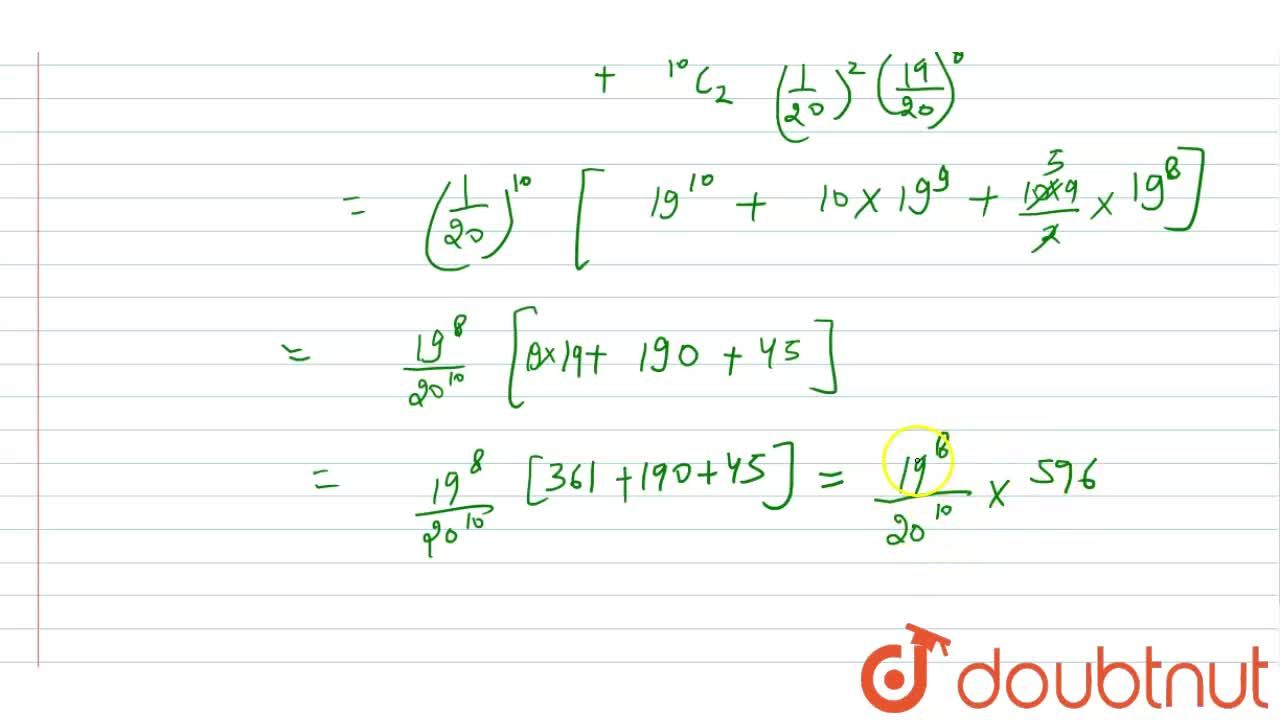 + ¹⁰C₂ (1/20)² (19/20)⁸
= (1/20)¹⁰ [ 19¹⁰ + 10 × 19⁹ + 5 10×9/2 × 19⁸ ]
= 19⁸/20¹⁰ [19×19 + 190 + 45]
= 19⁸/20¹⁰ [361 + 190 + 45] = 19⁸/20¹⁰ × 596
doubtnut